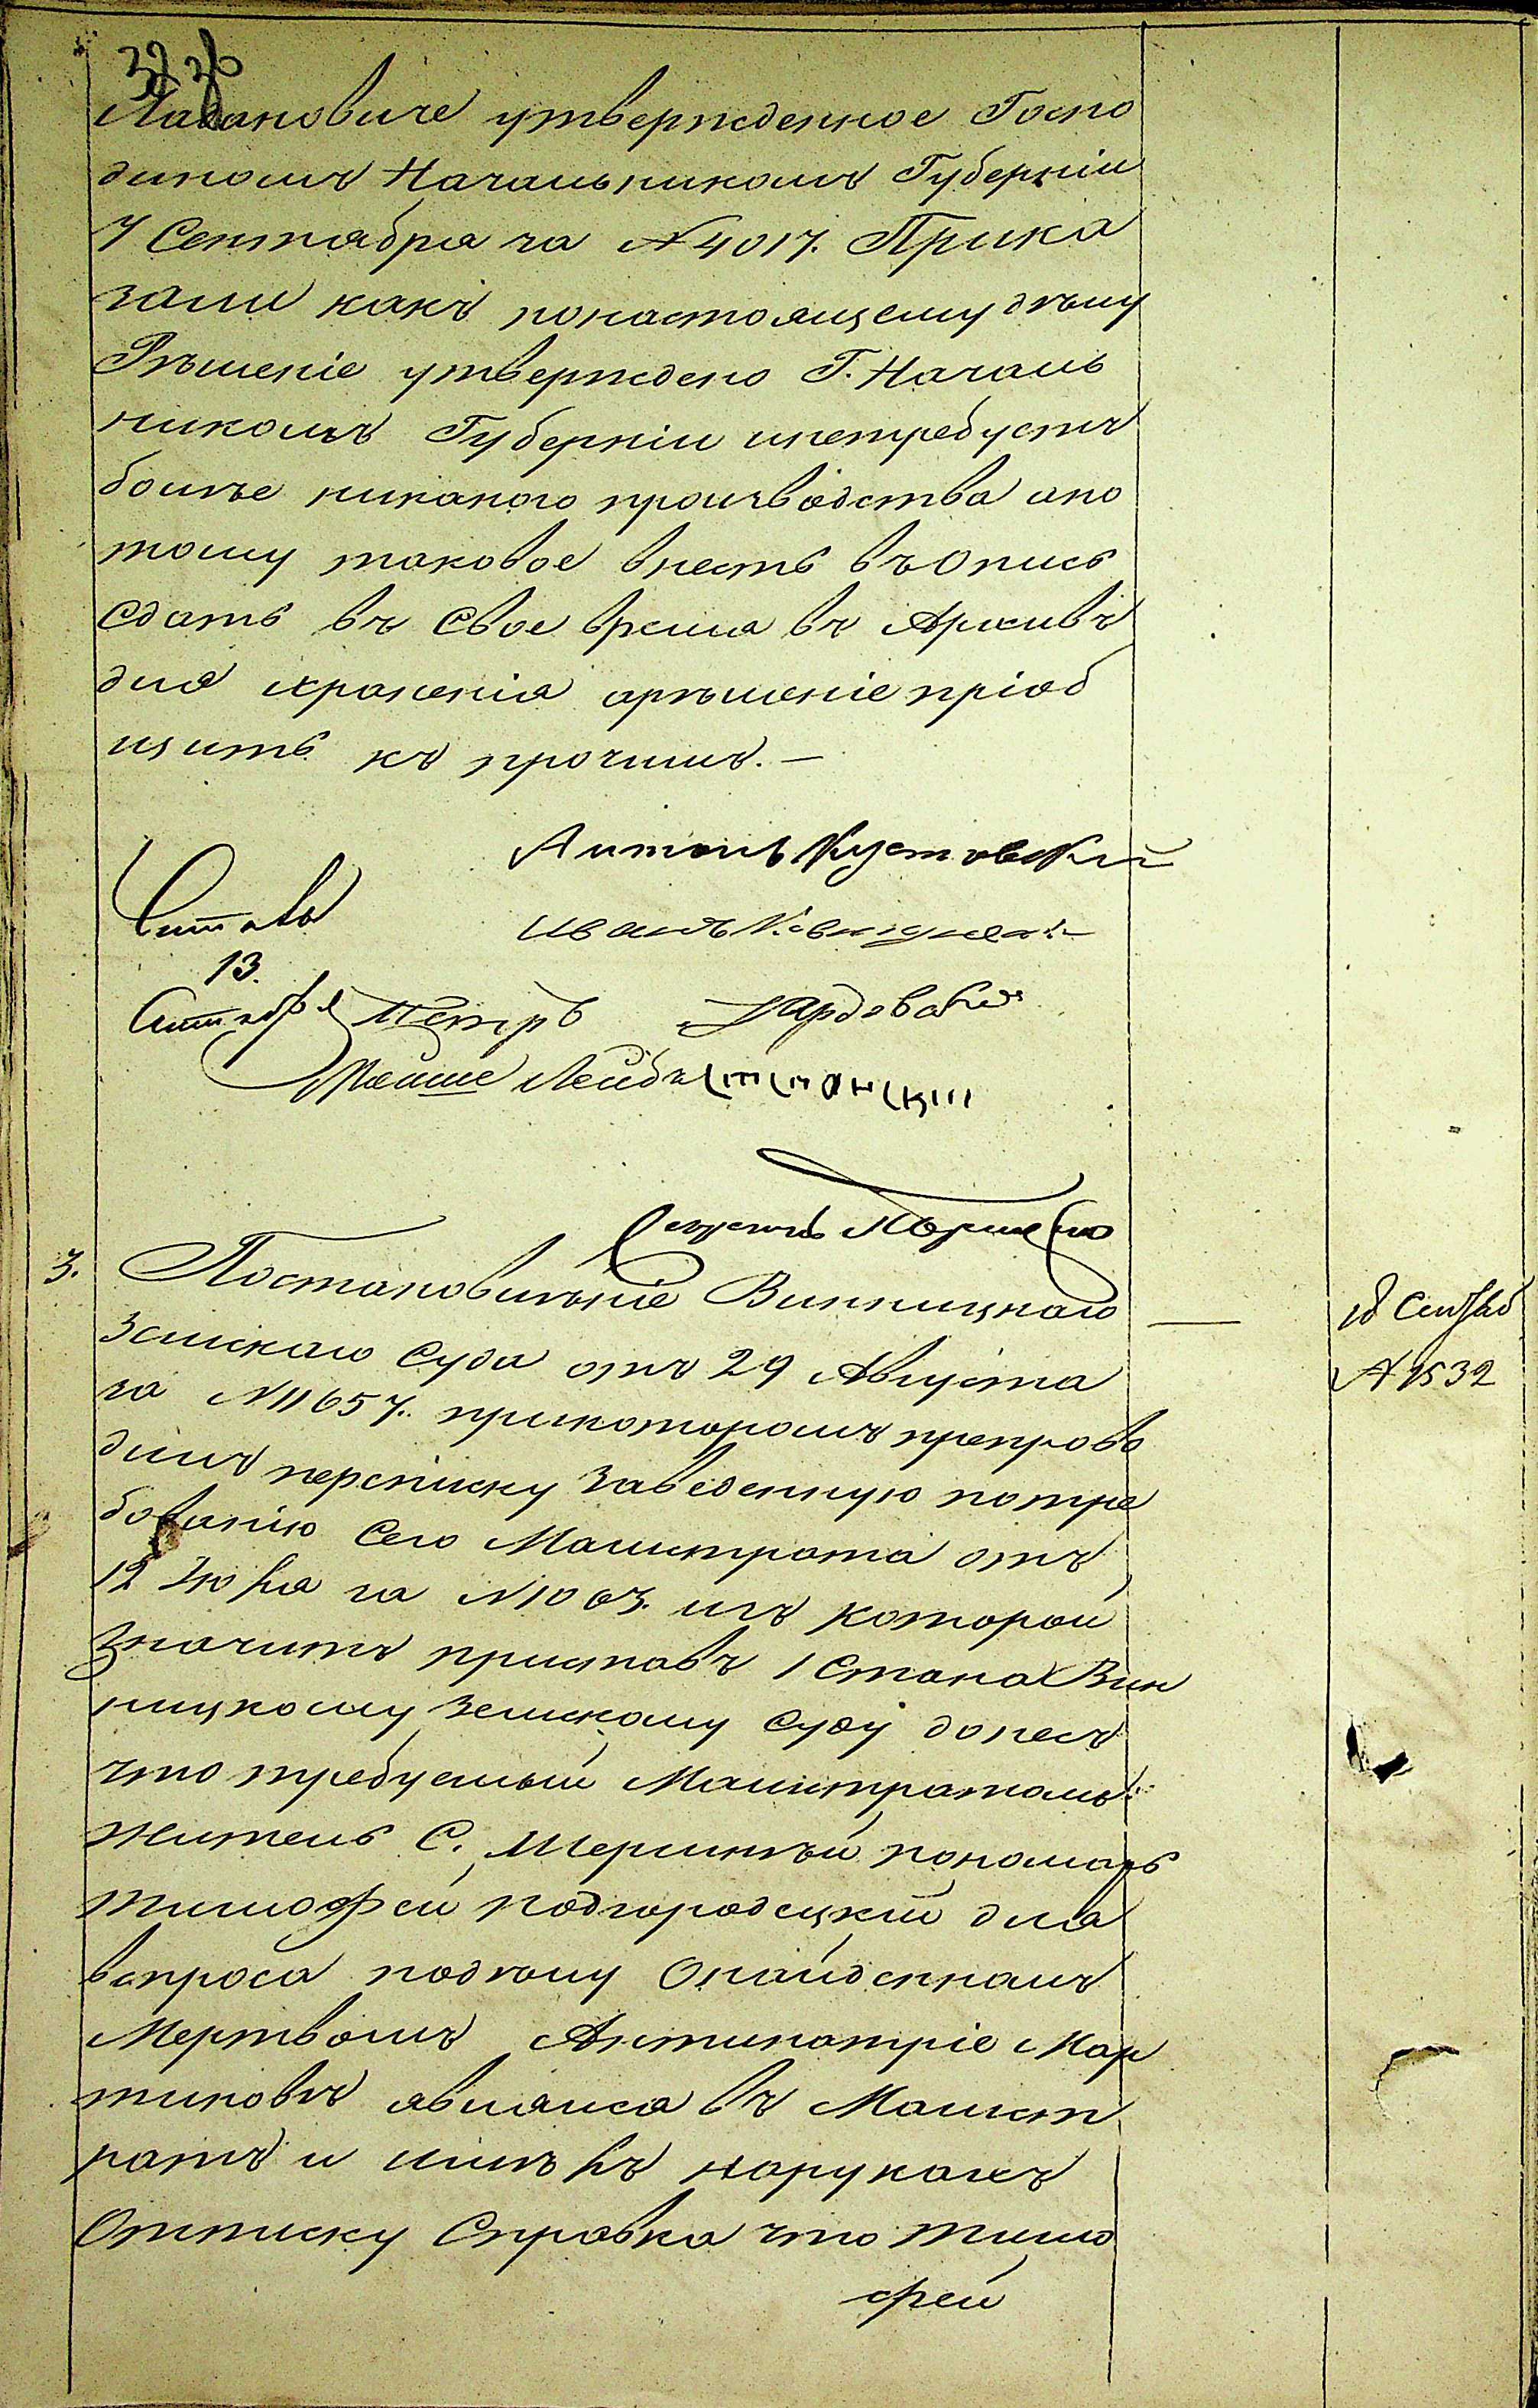 Лагановиче утвержденное Госпо
диномъ Начальникомъ Губерніи
7 Сентября за №4017. Прика
зали какъ понастоящему дѣлу
Рѣшеніе утверждено Г. Началь
никомъ Губерніи инетребуетъ
болѣе никакого производства ипо
тому таковое внесть въ Опись
сдать въ Свое время въ Архивъ
для храненія арѣшеніе пріоб
щить къ прочимъ. —
Антонъ Кустовскій
Иванъ
13.
Петръ
Мошше Лейбъ
3. Постановильніе Винницкаго
Земскаго Суда отъ 29 Августа
за №11657. прикоторомъ препрово
дилъ переписку заведенную потре
бованію Сего Магистрата отъ
12 Іюля за №1063. изъ которой
значитъ приставъ 1 Стана Вин
ницкому Земскому Суду донесъ
что требуемый Магистратомъ
житель С. Шершнѣй пономарь
Тимофей Подгородецкій для
вспроса подѣлу Онайденномъ
Мертвомъ Антипатріе Мар
тиновѣ явился въ Магист
ратъ и имѣлъ нарукахъ
Отписку Справка что Тимо
фей
18 Сентяб
№ 1532